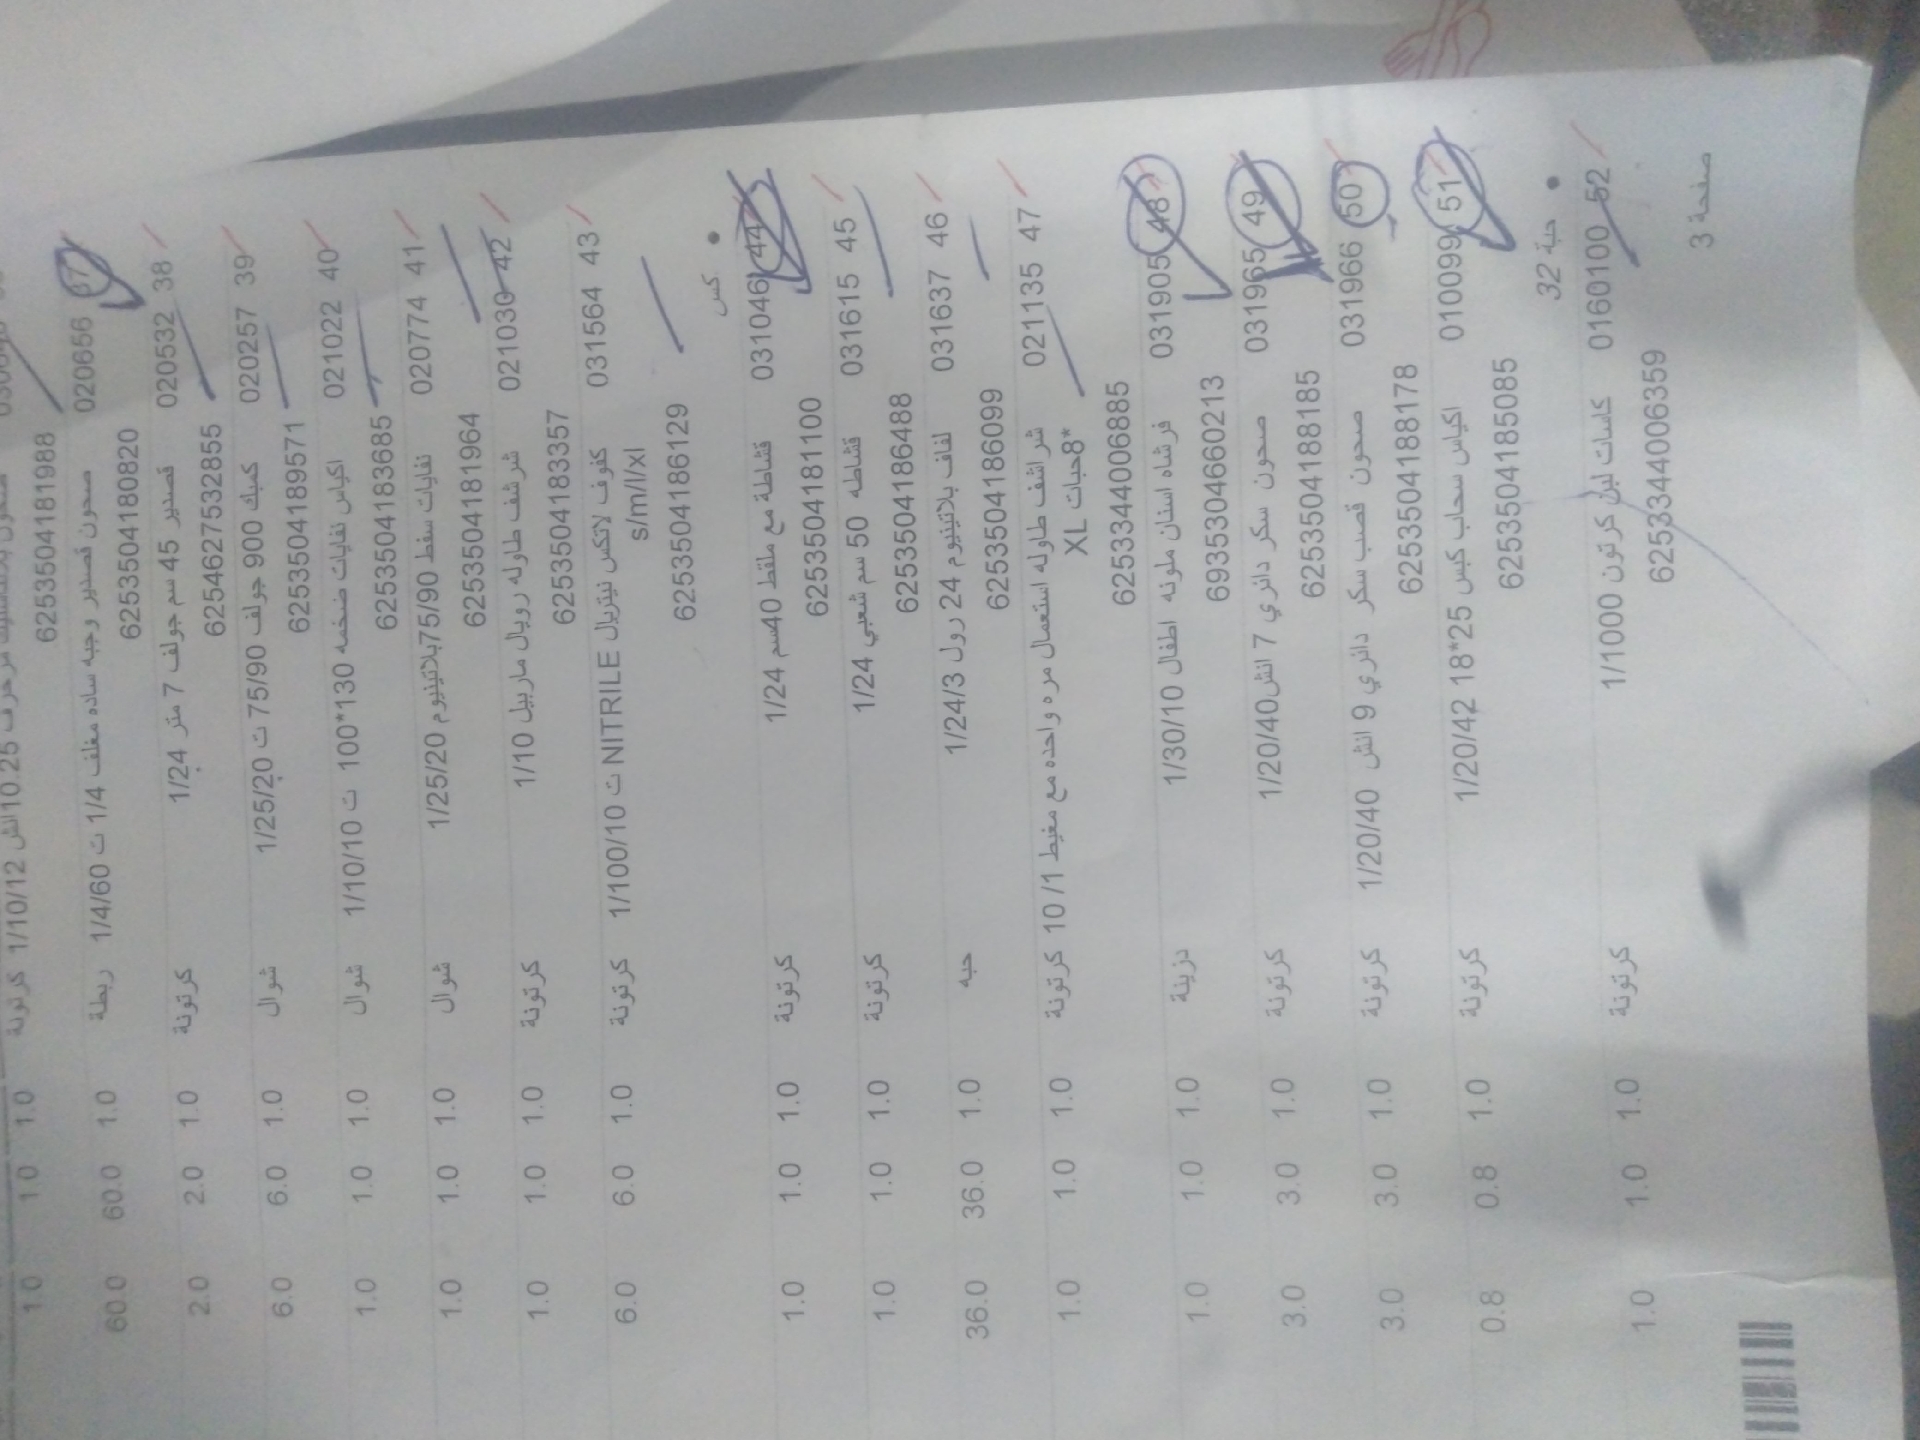 6253504181988
1.0 1.0 1.0 كرتونة 1/10/12
37 020656 صحون قصدير وجبه ساده مغلف 1/4 ت 1/4/60 ربطة 1.0 60.0 60.0
6253504180820
38 020532 قصدير 45 سم جولف 7 متر 1/24 كرتونة 1.0 2.0 2.0
6254627532855
39 020257 كمبك 900 جولف 75/90 ت 1/25/20 شوال 1.0 6.0 6.0
6253504189571
40 021022 اكياس نفايات ضخمه 130*100 ت 1/10/10 شوال 1.0 1.0 1.0
6253504183685
41 020774 نفايات سفط 75/90بلاتينيوم 1/25/20 شوال 1.0 1.0 1.0
6253504181964
42 021030 شرشف طاوله رويال ماربيل 1/10 كرتونة 1.0 1.0 1.0
6253504183357
43 031564 كفوف لاتكس نيتريال NITRILE ت 1/100/10 كرتونة 1.0 6.0 6.0
s/m/l/xl
6253504186129
• كس
44 031046 قشاطة مع ملقط 40سم 1/24 كرتونة 1.0 1.0 1.0
6253504181100
45 031615 قشاطه 50 سم شعبي 1/24 كرتونة 1.0 1.0 1.0
6253504186488
46 031637 لفاف بلاتينيوم 24 رول 1/24/3 حبه 1.0 36.0 36.0
6253504186099
47 021135 شراشف طاوله استعمال مره واحده مع مغيط 1/ 10 كرتونة 1.0 1.0 1.0
*8حبات XL
6253344006885
48 031905 فرشاه اسنان ملونه اطفال 1/30/10 دزينة 1.0 1.0 1.0
6935304660213
49 031965 صحون سكر دائري 7 انش 1/20/40 كرتونة 1.0 3.0 3.0
6253504188185
50 031966 صحون قصب سكر دائري 9 انش 1/20/40 كرتونة 1.0 3.0 3.0
6253504188178
51 010099 اكياس سحاب كبس 25*18 1/20/42 كرتونة 1.0 0.8 0.8
6253504185085
• حبة 32
52 0160100 كاسات لبن كرتون 1/1000 كرتونة 1.0 1.0 1.0
6253344006359
صفحة 3